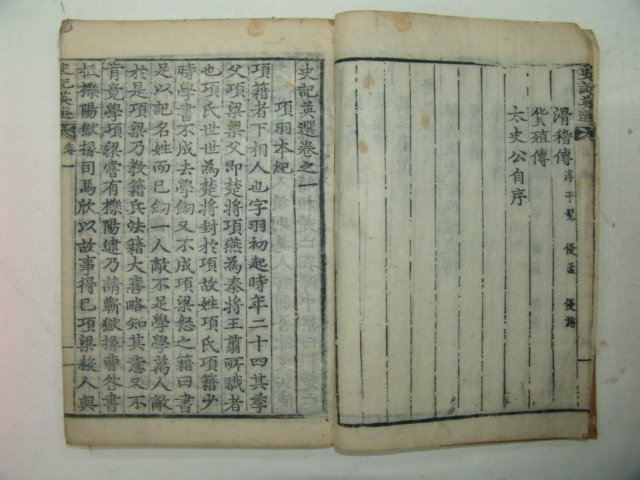 史記英選
滑稽傳 淳于髡 優孟 優旃
貨殖傳
太史公自序
史記英選卷之一
項羽本紀
項籍者下相人也字羽初起時年二十四其季
父項梁梁父即楚將項燕為秦將王翦所戮者
也項氏世世為楚將封於項故姓項氏項籍少
時學書不成去學劒又不成項梁怒之籍曰書
足以記名姓而已劒一人敵不足學學萬人敵
於是項梁乃教籍兵法籍大喜略知其意又不
肯竟學項梁嘗有櫟陽逮乃請蘄獄掾曹咎書
抵櫟陽獄掾司馬欣以故事得已項梁殺人與
史記英選 卷一